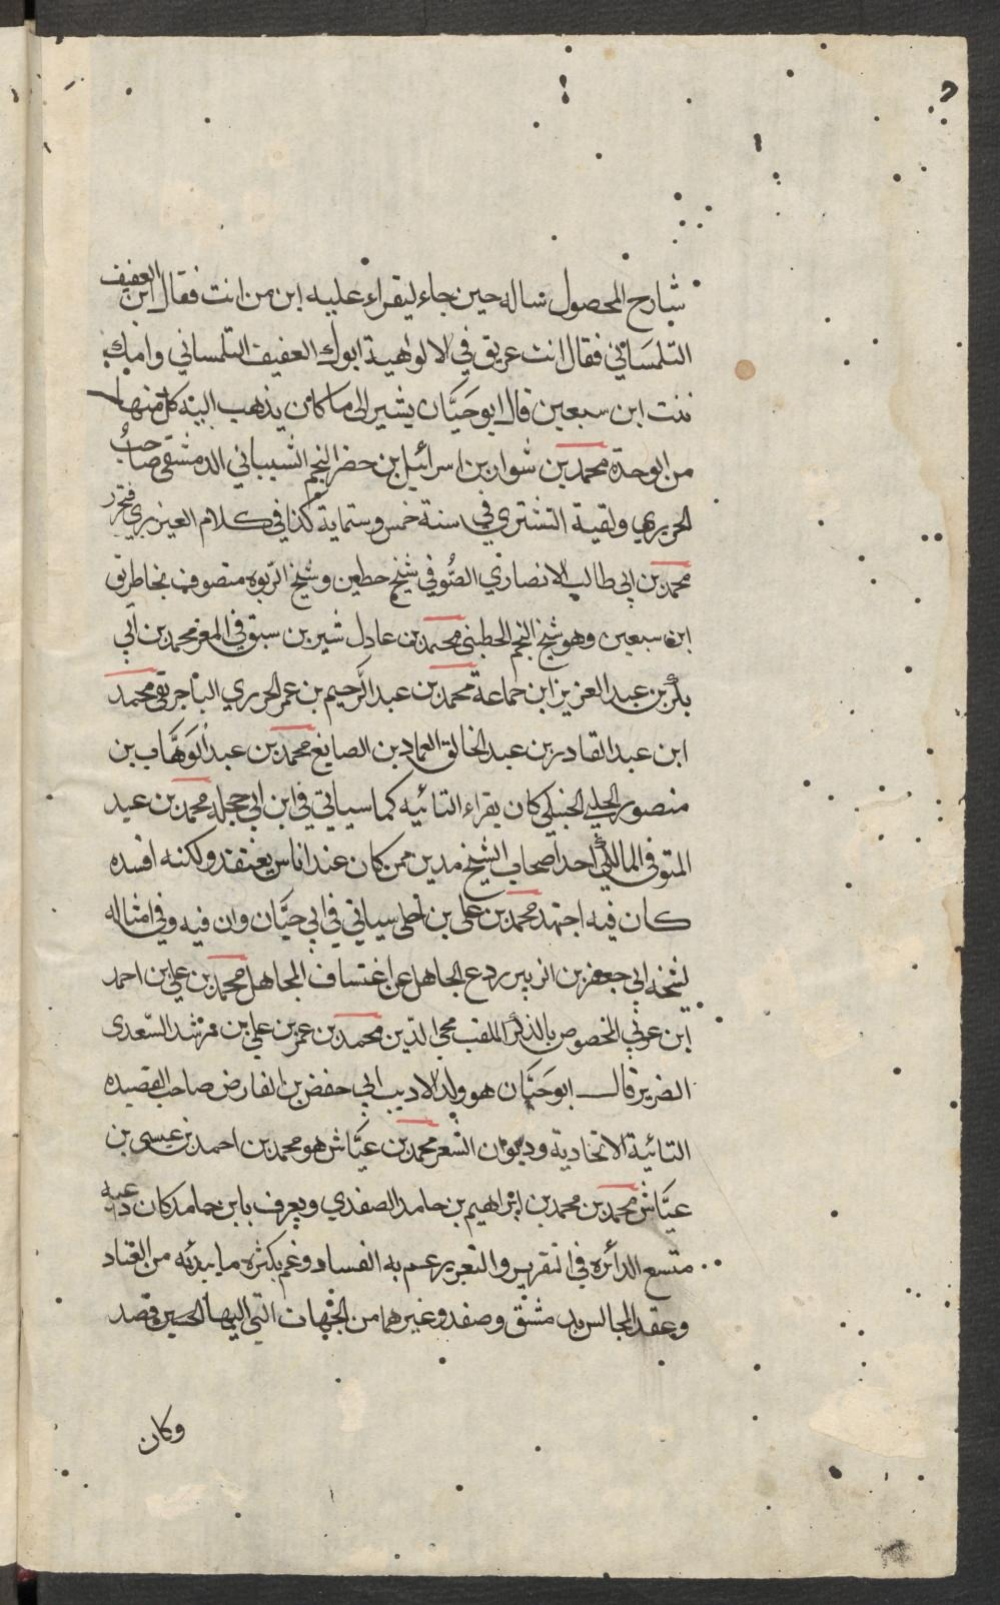 شارح المحصول ساله حين جاء ليقراء عليه ابن من انت فقال ابن العفيف
التلمساني فقال انت عريق في الالوهية ابوك العفيف التلمساني وامك
بنت ابن سبعين قال ابو حيان يشير الى ما كان يذهب اليه كل منهما
من الوحدة محمد بن سوار بن اسرائيل بن خضر النجم الشيباني الدمشقي صاحب
الحريري ولقية التشتري في سنة خمس وستماية كذا في كلام العيزري فتحرر
محمد بن ابي طالب الانصاري الصوفي شيخ حطين وشيخ الربوه متصوف نحا طريق
ابن سبعين وهو شيخ النجم الحطيني محمد بن عادل شير بن سبتو في المعز محمد بن ابي
بكر بن عبد العزيز ابن جماعة محمد بن عبد الرحيم بن عمر الحرري الباجريقي محمد
ابن عبد القادر بن عبد الخالق العماد بن الصايغ محمد بن عبد الوهاب بن
منصور الحلي الحنبلي كان يقراء التائيه كما سياتي في ابن ابي حجله محمد بن عيد
المتوفى المالكي احد اصحاب الشيخ مدين ممن كان عند اناس يعتقد ولكنه افسده
كان فيه اجتهد محمد بن علي بن احلى سياتي في ابي حيان وان فيه وفي امثاله
لشيخه ابي جعفر بن الزبير ردع الجاهل عن اغتساف المجاهل محمد بن علي بن احمد
ابن عربي المخصوص بالذكر الملقب محي الدين محمد بن عمر بن علي بن مرشد السعدى
الضرير قال ابو حيان هو ولد الاديب ابي حفض بن الفارض صاحب القصيده
التائية الاتحادية وديوان الشعر محمد بن عياش هو محمد بن احمد بن عيسى بن
عياش محمد بن محمد بن ابراهيم بن حامد الصفدي ويعرف بابن حامد كان داعيه
متسع الدائره في التقرير والتعرير عم به الفساد وغم بكثره ما يبديه من العناد
وعقد المجالس بدمشق وصفد وغيرهما من الجهات التي اليها الحسين قصد
وكان